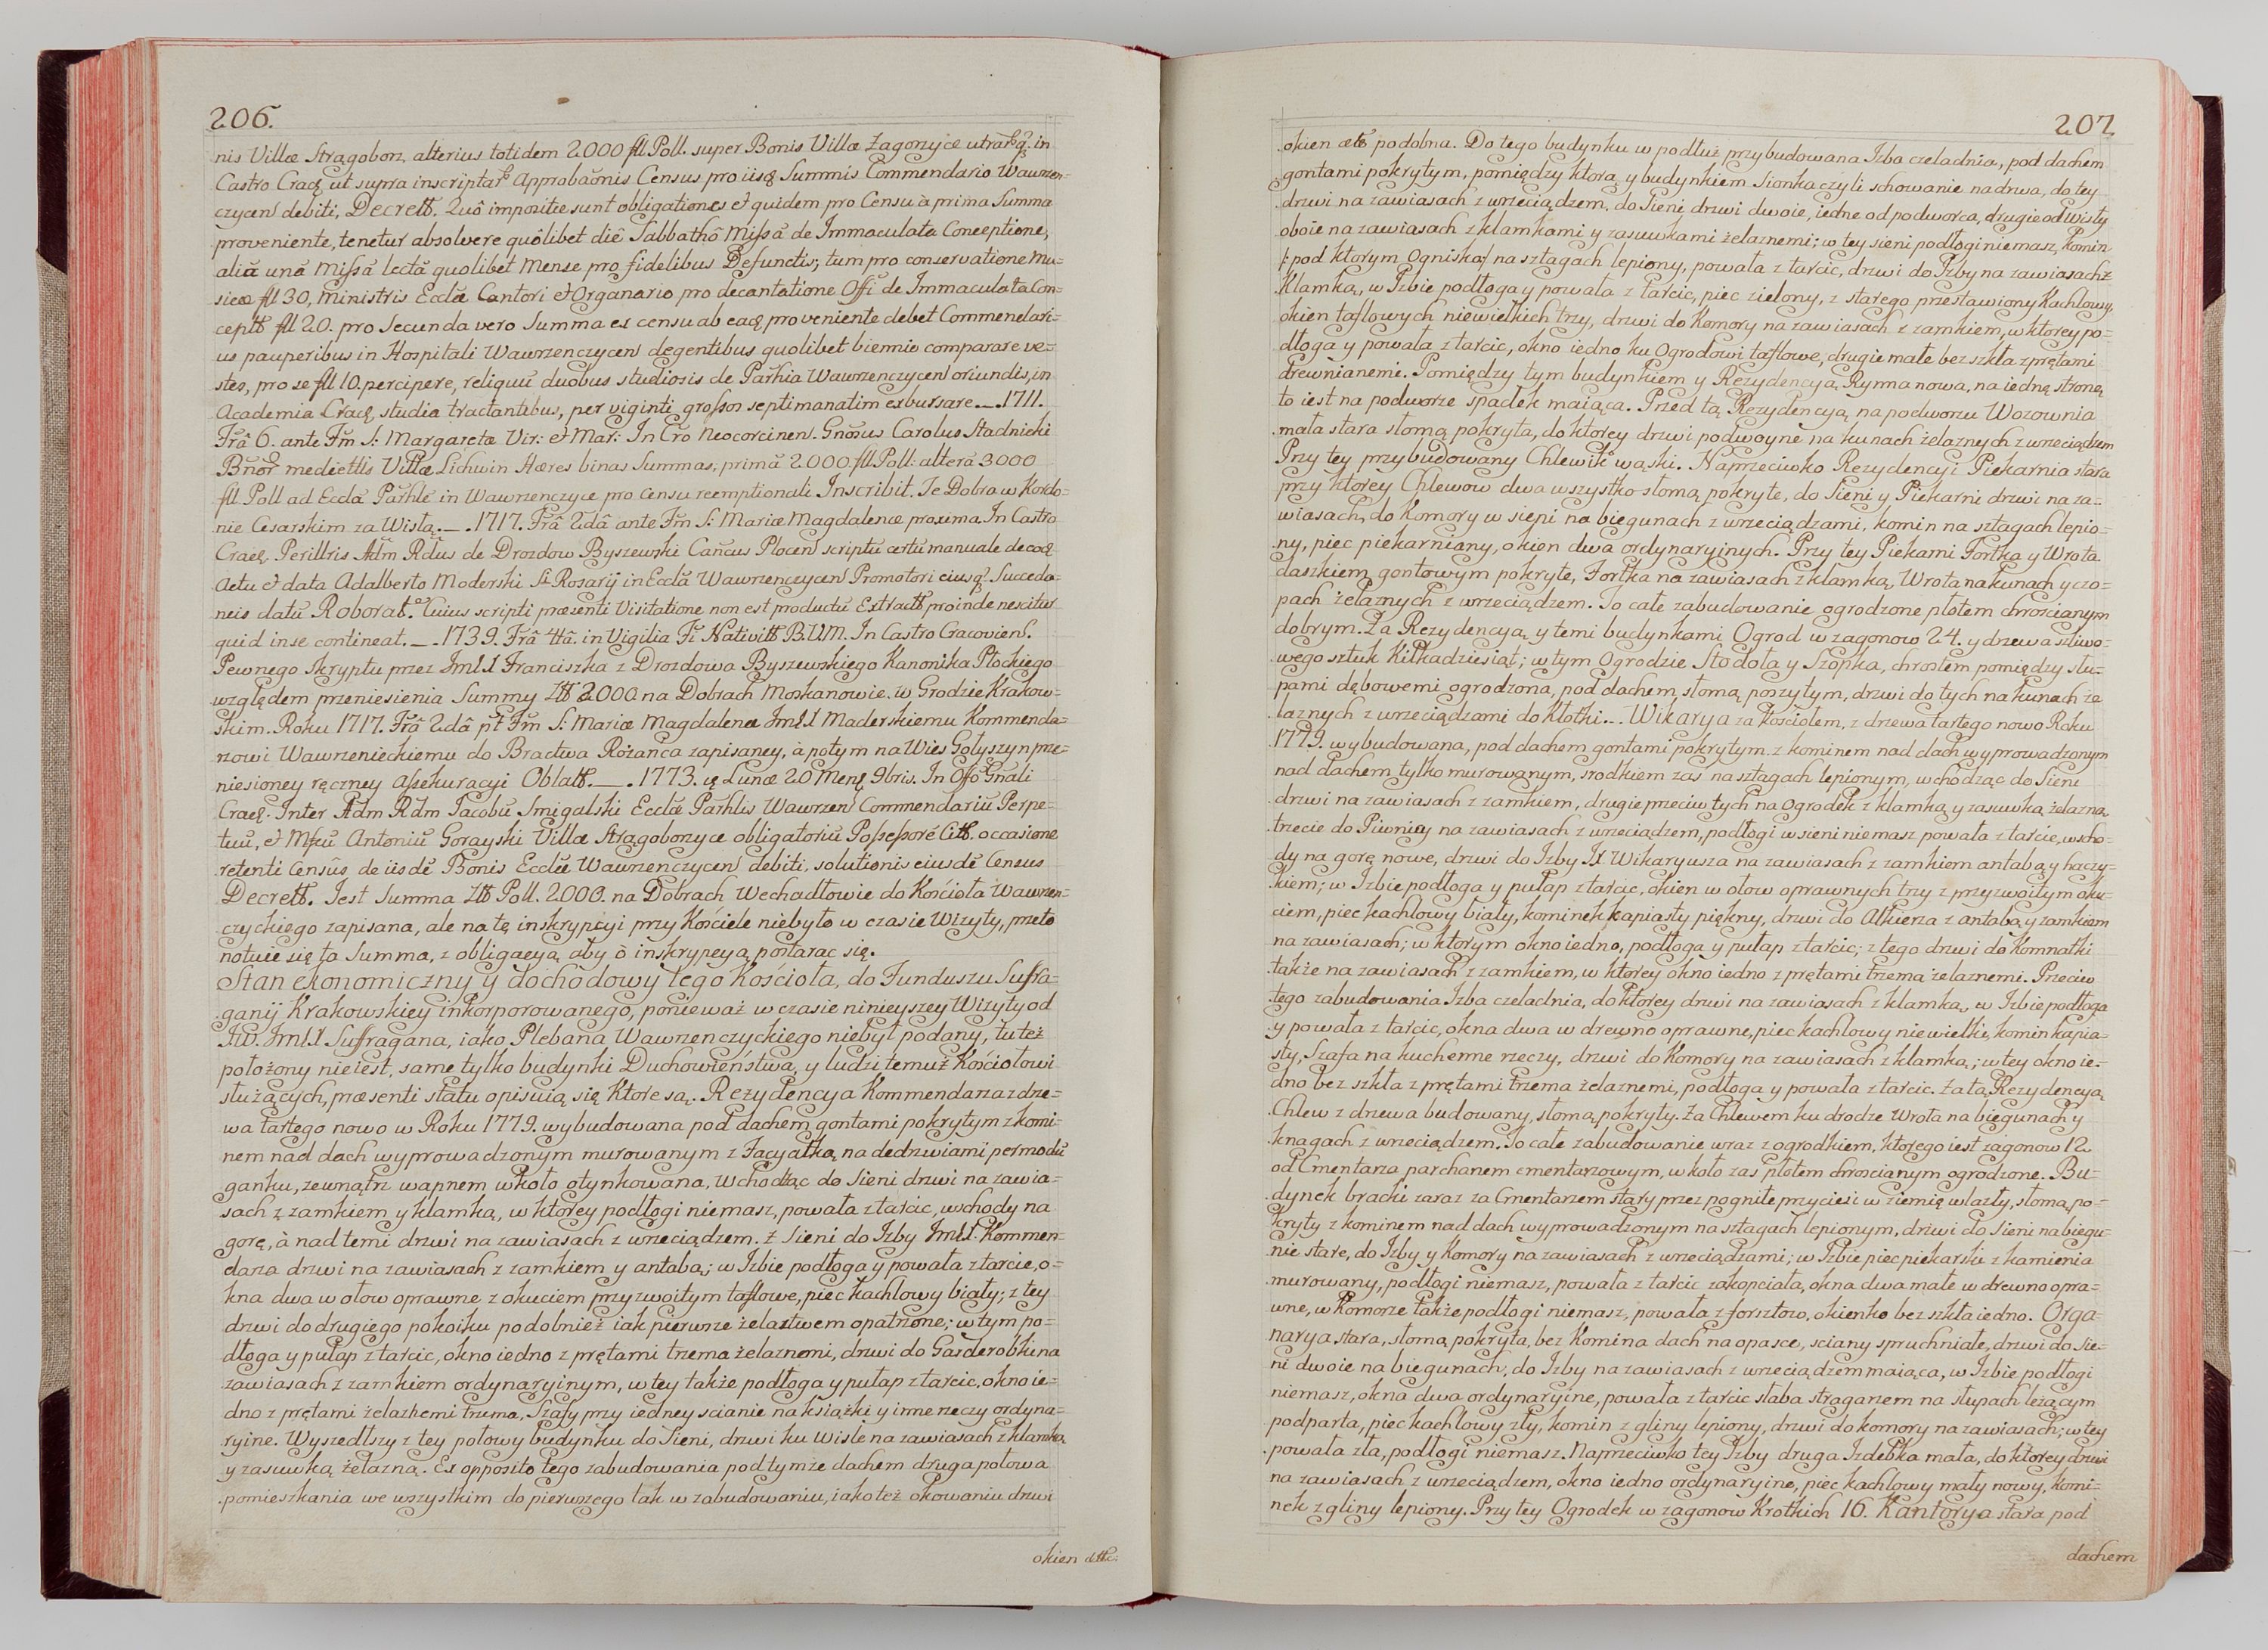 206.
nis Villæ Strągoborz, alterius totidem 2000 fll Poll. super Bonis Villæ Łagorzyce in
Castro Crac. ut supra Approbaõnis Census pro iisq Summis Commendario Wawrzen-
czyceñ debiti, Decrett. Quô impositæ sunt obligationes et quidem pro Censu à prima Summa
proveniente, tenetur absolvere quôlibet diê Sabbathô Missã de Immaculata Conceptione,
aliã unã Missã lectã quolibet Mense pro fidelibus Defunctis; tum pro conservatione Mu-
sicæ fll 30, Ministris Eccłæ Cantori et Organario pro decantatione Offi de Immaculata Con-
ceptt fll 20. pro Secunda vero Summa ex censu ab eaq proveniente debet Commendari-
us pauperibus in Hospitali Wawrzenczyceñ degentibus quolibet biennio comparare ve-
stes, pro se fll 10. percipere, reliquũ duobus studiosis de Parhia Wawrzenczyceñ oriundis, in
Academia Crac. studia tractantibus, per viginti grossos septimanatim exbursare._.1711.
Frâ 6. ante Fm S: Margaretæ Vir: et Mar: In Cro Neocorcineñ. Gnosus Carolus Stadnicki
Bnor mediettis Villæ Lichwin Hæres binas Summas; primã 2000. fll Poll: alterã 3000
fll Poll ad Eccłã Parhle in Wawrzenczyce pro censu reemptionali Inscribit. Te Dobra w Kordo-
nie Cesarskim za Wisłą._.1717. Frâ 2dâ ante Fm S: Mariæ Magdalenæ proxima. In Castro
Crac. Perillris Adm Rdus de Drozdow Byszewski Cancus Płoceñ scriptũ certũ manuale de eoq
Actu et data Adalberto Moderski S. Rosarij in Eccłã Wawrzenczyceñ Promotori eiusq Succeda-
neis datũ Roborat. Cuius scripti præsenti Visitatione non est productũ Extractt proinde nescitur
quid in se contineat._.1739. Frâ 4tâ. in Vigilia Fi Nativitt B.V.M. In Castro Cracovieñ.
Pewnego Skryptu przez Jmci X Franciszka z Drozdowa Byszewskiego Kanonika Płockiego
względem przeniesienia Summy Złł 2000. na Dobrach Moskanowie. w Grodzie Krakow-
skim. Roku 1717. Frâ 2dâ pt Fm S: Mariæ Magdalenæ Jmci X Maderskiemu Kommenda-
rzowi Wawrzenieckiemu do Bractwa Rożańca zapisaney, à potym na Wieś Gołyszyn prze-
niesioney ręczney Assekuracyi Oblatt._.1773. Lunæ 20 Mens 9bris. In Offo Gnali
Crac. Inter Adm Rdm Jacobũ Smigalski Eccłæ Parhlis Wawrzeñ Commendariũ Perpe-
tuũ, et Mfcũ Antoniũ Gorayski Villæ Strągoborzyce obligatoriũ Possessorẽ Citt. occasione
retenti Censûs, de iisdẽ Bonis Eccłæ Wawrzenczyceñ debiti, solutionis eiusdẽ Census
Decrett. Jest Summa Złł Poll. 2000. na Dobrach Wechadłowie do Kościoła Wawrzen-
czyckiego zapisana, ale na tę inskrypcyi przy Kościele niebyło w czasie Wizyty, przeto
notuie się ta Summa, z obligacyą aby ò inskrypcyą postarac się.
Stan ekonomiczny y dochodowy tego Kościoła, do Funduszu Suffra-
ganij Krakowskiey inkorporowanego, ponieważ w czasie ninieyszey Wizyty od
JW. Jmci X Suffragana, iako Plebana Wawrzenczyckiego niebył podany, tu też
położony nieiest, same tylko budynki Duchowieństwa, y ludzi temuż Kościołowi
służących, præsenti statu opisuią się które są. Rezydencya Kommendarza z drze-
wa tartego nowo w Roku 1779. wybudowana pod dachem gontami pokrytym z komi-
nem nad dach wyprowadzonym murowanym z Facyatką, na dedrzwiami permodũ
ganku, zewnątrz wapnem wkoło otynkowana. Wchodząc do Sieni drzwi na zawia-
sach z zamkiem y klamką, w którey podłogi niemasz, powała z tarcic, wschody na
gorę, à nad temi drzwi na zawiasach z wrzeciądzem. z Sieni do Izby Jmci X. Kommen-
darza drzwi na zawiasach z zamkiem y antabą; w Izbie podłoga y powała z tarcic, o-
kna dwa w ołow oprawne z okuciem przyzwoitym taflowe, piec kachlowy biały; z tey
drzwi do drugiego pokoiku podobnież iak pierwsze żelaztwem opatrzone; w tym po-
dłoga y pułap z tarcic, okno iedno z prętami trzema żelaznemi, drzwi do Garderobki na
zawiasach z zamkiem ordynaryinym, w tey także podłoga y pułap z tarcic, okno ie-
dno z prętami żelaznemi trzema, Szafy przy iedney scianie na książki y inne rzeczy ordyna-
ryine. Wyszedłszy z tey połowy budynku do Sieni, drzwi ku Wiśle na zawiasach z klamką
y zasuwką żelazną. Ex opposito tego zabudowania pod tymże dachem druga połowa
pomieszkania we wszystkim do pierwszego tak w zabudowaniu, iako też okowaniu drzwi
okien ettc:
207
okien etc podobna. Do tego budynku w podłuż przybudowana Izba czeladnia, pod dachem
gontami pokrytym, pomiędzy którą y budynkiem Sionka czyli schowanie na drwa, do tey
drzwi na zawiasach z wrzeciądzem. do Sieni drzwi dwoie, iedne od podworca, drugie od Wisły
oboie na zawiasach z klamkami y zasuwkami żelaznemi; w tey sieni podłogi niemasz, Komin
/: pod ktorym Ognisko :/ na sztagach lepiony, powała z tarcic, drzwi do Izby na zawiasach z
Klamką, w Izbie podłoga y powała z tarcic, piec zielony, z starego przestawiony Kachlowy,
okien taflowych niewielkich trzy, drzwi do Komory na zawiasach z zamkiem, w ktorey po-
dłoga y powała z tarcic, okno iedno ku Ogrodowi taflowe, drugie małe bez szkła z prętami
drewnianemi. Pomiędzy tym budynkiem y Rezydencyą Rynna nowa, na iednę stronę
to iest na podworze spadek maiąca. Przed tą Rezydencyą na podworzu Wozownia
mała stara słomą pokryta, do ktorey drzwi podwoyne na kunach żelaznych z wrzeciądzem
Przy tey przybudowany Chlewik wąski. Naprzeciwko Rezydencyi Piekarnia stara
przy ktorey Chlewow dwa wszystko słomą pokryte, do Sieni y Piekarni drzwi na za-
wiasach, do Komory w sieni na biegunach z wrzeciądzami, komin na sztagach lepio-
ny, piec piekarniany, okien dwa ordynaryinych. Przy tey Piekarni Fortka y Wrota
daszkiem gontowym pokryte, Fortka na zawiasach z klamką, Wrota na kunach y czo-
pach żelaznych z wrzeciądzem. To całe zabudowanie ogrodzone płotem chrościanym
dobrym. Za Rezydencyą y temi budynkami Ogrod w zagonow 24. y drzewa szliwo-
wego sztuk Kilkadziesiąt; w tym Ogrodzie Stodoła y Szopka, chrostem pomiędzy słu-
pami dębowemi ogrodzona, pod dachem słomą poszytym, drzwi do tych na kunach że-
laznych z wrzeciądzami do Kłotki._. Wikarya za Kościołem, z drzewa tartego nowo Roku
1779. wybudowana, pod dachem gontami pokrytym z kominem nad dach wyprowadzonym
nad dachem tylko murowanym, srodkiem zaś na sztagach lepionym, wchodząc do Sieni
drzwi na zawiasach z zamkiem, drugie przeciw tych na Ogrodek z klamką y zasuwką żelazną,
trzecie do Piwnicy na zawiasach z wrzeciądzem, podłogi w sieni niemasz powała z tarcic, wscho-
dy na gorę nowe, drzwi do Izby JX. Wikaryusza na zawiasach z zamkiem antabą y haczy-
kiem; w Izbie podłoga y pułap z tarcic, okien w ołow oprawnych trzy z przyzwoitym oku-
ciem, piec kachlowy biały, kominek kapiasty piękny, drzwi do Alkierza z antabą y zamkiem
na zawiasach; w ktorym okno iedno, podłoga y pułap z tarcic; z tego drzwi do Komnatki
także na zawiasach z zamkiem, w ktorey okno iedno z prętami trzema żelaznemi. Przeciw
tego zabudowania Izba czeladnia, do ktorey drzwi na zawiasach z klamką, w Izbie podłoga
y powała z tarcic, okna dwa w drewno oprawne, piec kachlowy niewielki, komin kapia-
sty, Szafa na kuchenne rzeczy, drzwi do Komory na zawiasach z klamką; w tey okno ie-
dno bez szkła z prętami trzema żelaznemi, podłoga y powała z tarcic. Za tą Rezydencyą
Chlew z drzewa budowany, słomą pokryty. Za Chlewem ku drodze Wrota na biegunach y
knagach z wrzeciądzem. To całe zabudowanie wraz z ogrodkiem, ktorego iest zagonow 12
od Cmentarza parchanem cmentarzowym, w koło zaś płotem chrościanym ogrodzone. Bu-
dynek bracki zaraz za Cmentarzem stary przez pogniłe przyciesi w ziemię wlazły, słomą po-
kryty z kominem nad dach wyprowadzonym na sztagach lepionym, drzwi do Sieni na biegu-
nie stare, do Izby y Komory na zawiasach z wrzeciądzami; w Izbie piec piekarski z kamienia
murowany, podłogi niemasz, powała z tarcic zakopciała, okna dwa małe w drewno opra-
wne, w Komorze także podłogi niemasz, powała z forsztow, okienko bez szkła iedno. Orga-
narya stara, słomą pokryta, bez Komina dach na opasce, sciany spruchniałe, drzwi do Sie-
ni dwoie na biegunach, do Izby na zawiasach z wrzeciądzem maiąca, w Izbie podłogi
niemasz, okna dwa ordynaryine, powała z tarcic słaba stragarzem na słupach leżącym
podparta, piec kachlowy zły, komin z gliny lepiony, drzwi do komory na zawiasach; w tey
powała zła, podłogi niemasz. Naprzeciwko tey Izby druga Izdebka mała, do ktorey drzwi
na zawiasach z wrzeciądzem, okno iedno ordynaryine, piec kachlowy mały nowy, komi-
nek z gliny lepiony. Przy tey Ogrodek w zagonow Krotkich 16. Kantorya stara pod
dachem